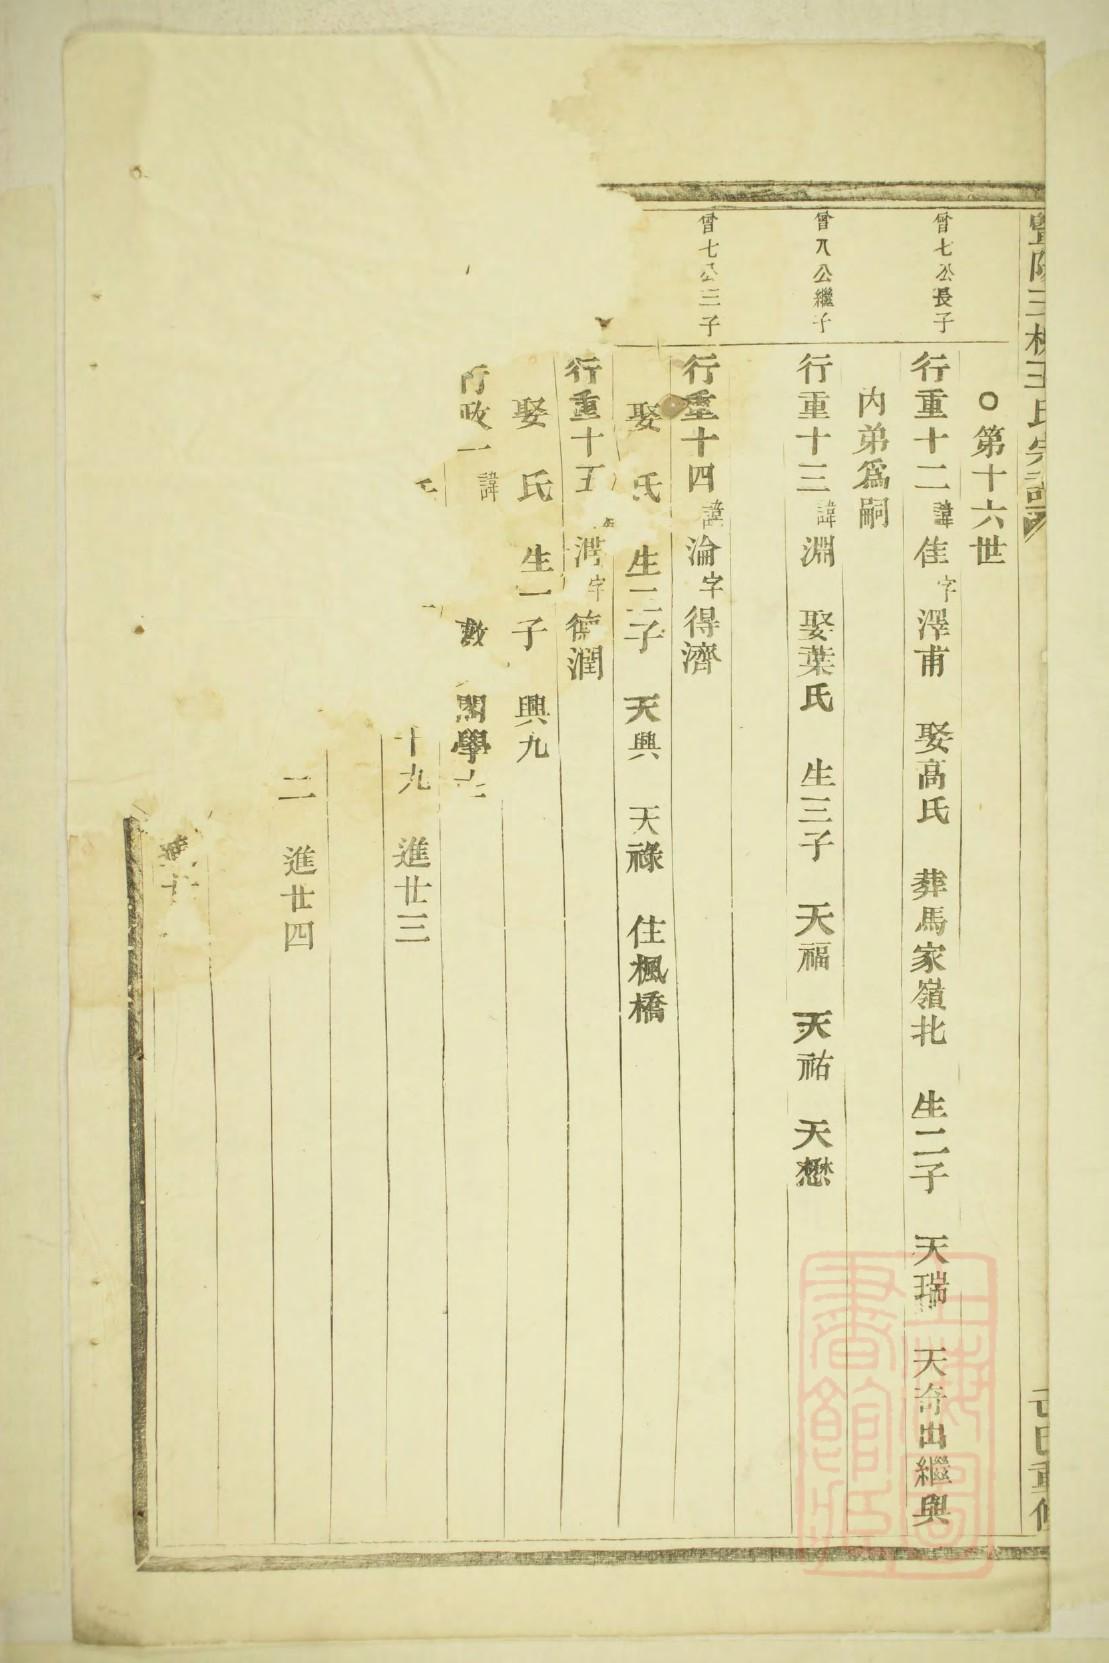 王氏宗譜
○第十六世
曾七公長子
行重十二諱佳字澤甫 娶高氏 葬馬家嶺北 生二子 天瑞 天奇出繼與
内弟爲嗣
曾八公繼子
行重十三諱淵 娶葉氏 生三子 天福 天祐 天懋
曾七公三子
行重十四諱淪字得濟
娶 氏 生二子 天興 天祿 住楓橋
行重十五 字德潤
娶 氏 生一子 興九
行政一諱
學
十九 進廿三
二 進廿四
上海圖書館藏